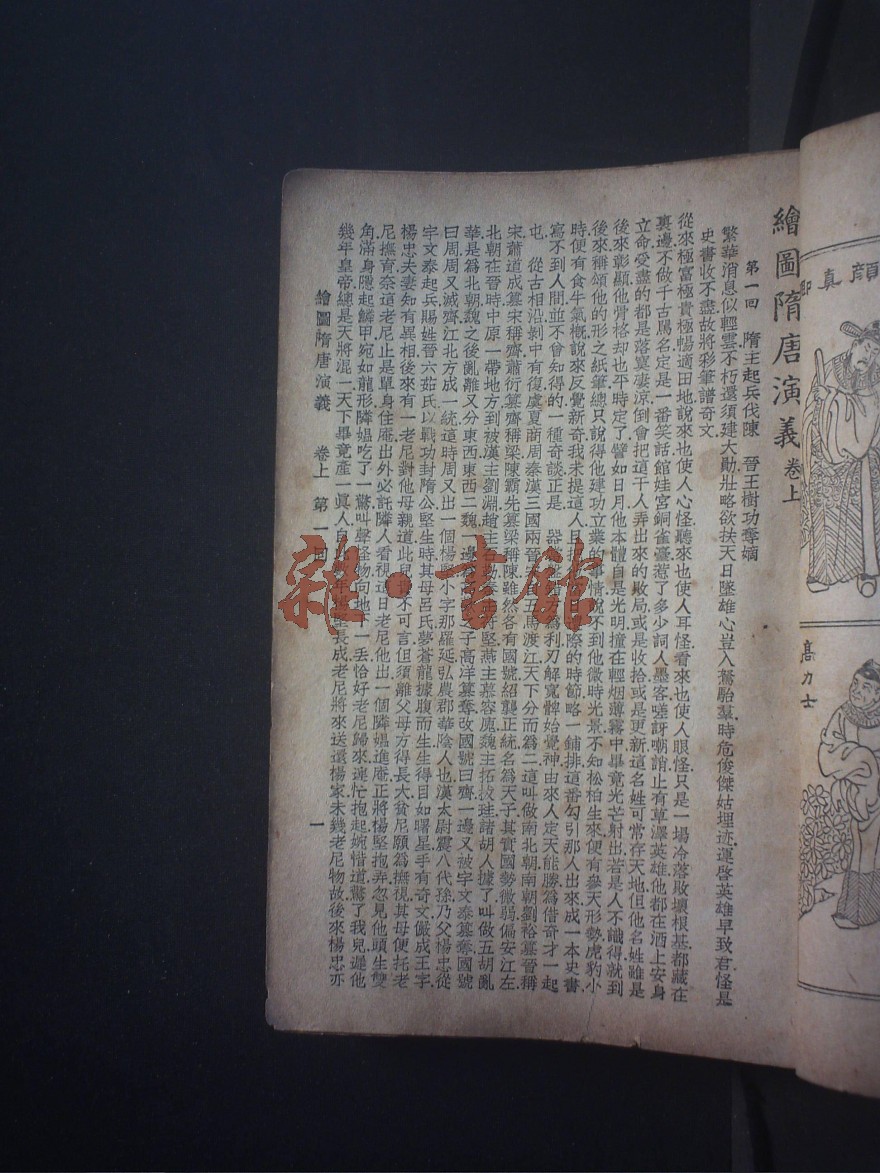 顏真卿
高力士
繪圖隋唐演義 卷上
第一回 隋主起兵伐陳 晉王樹功奪嫡
繁華消息似輕雲不朽還須建大勛壯略欲扶天日墜雄心豈入駑駘羣時危俊傑姑埋迹運啓英雄早致君怪是
史書收不盡故將彩筆譜奇文
從來極富極貴極暢適田地說來也使人心怪聽來也使人耳怪看來也使人眼怪只是一場冷落敗壞根基都藏在
裏邊不做千古罵名定是一番笑話館娃宮銅雀臺惹了多少詞人墨客嗟訝嘲誚止有草澤英雄他都在酒上安身
立命受盡的都是落寞凄涼倒會把這干人弄出來的敗局或是收拾或是更新這名姓可常存天地但他名姓雖是
後來彰顯他骨格却也平時定了譬如日月他本體自是光明撞在輕烟薄霧中畢竟光芒射出若是人不識得就到
後來稱頌他的形之紙筆總只說得他建功立業的事情說不到他微時光景不知松柏生來便有參天形勢虎豹小
時便有食牛氣概說來反覺新奇我未提這人且 際的時節略一鋪排這番勾引那人出來成一本史書
寫不到人間並不曾知得的一種奇談正是 器 方爲利刃解寬髀始覺神由來人定天能勝爲借奇才一起
屯 從古相沿剝中有復虞夏商周秦漢三國兩晉 五馬渡江天下分而爲二這叫做南北朝南朝劉裕篡晉稱
宋蕭道成篡宋稱齊蕭衍篡齊稱梁陳霸先篡梁稱陳雖然各有國號紹襲正統名爲天子其實國勢微弱偏安江左
北朝在晉時中原一帶地方到被漢主劉淵趙主石勒秦主苻堅燕主慕容廆魏主拓拔珪諸胡人據了叫做五胡亂
華是爲北朝魏之後亂離又分東西東西二魏一邊爲 之子高洋篡奪改國號曰齊一邊又被宇文泰篡奪國號
曰周周又滅齊江北方成一統這時周又出一個楊堅小字那羅延弘農郡華陰人也漢太尉震八代孫乃父楊忠從
宇文泰起兵賜姓晉六茹氏以戰功封隋公堅生時其母呂氏夢蒼龍據腹而生生得目如曙星手有奇文儼成王字
楊忠夫妻知有異相後來有一老尼對他母親道此兒貴不可言但須離父母方得長大貧尼願爲撫視其母便托老
尼撫育奈這老尼止是單身住庵出外必託隣人看視這日老尼他出一個隣媼進庵正將楊堅抱弄忽見他頭生雙
角滿身隱起鱗甲宛如龍形隣媼吃了一驚叫聲怪物向地下一丟恰好老尼歸來連忙抱起婉惜道驚了我兒遲他
幾年皇帝總是天將混一天下畢竟產一眞人自此 年楊堅長成老尼將來送還楊家未幾老尼物故後來楊忠亦
繪圖隋唐演義 卷上 第一回 一
雜·書館